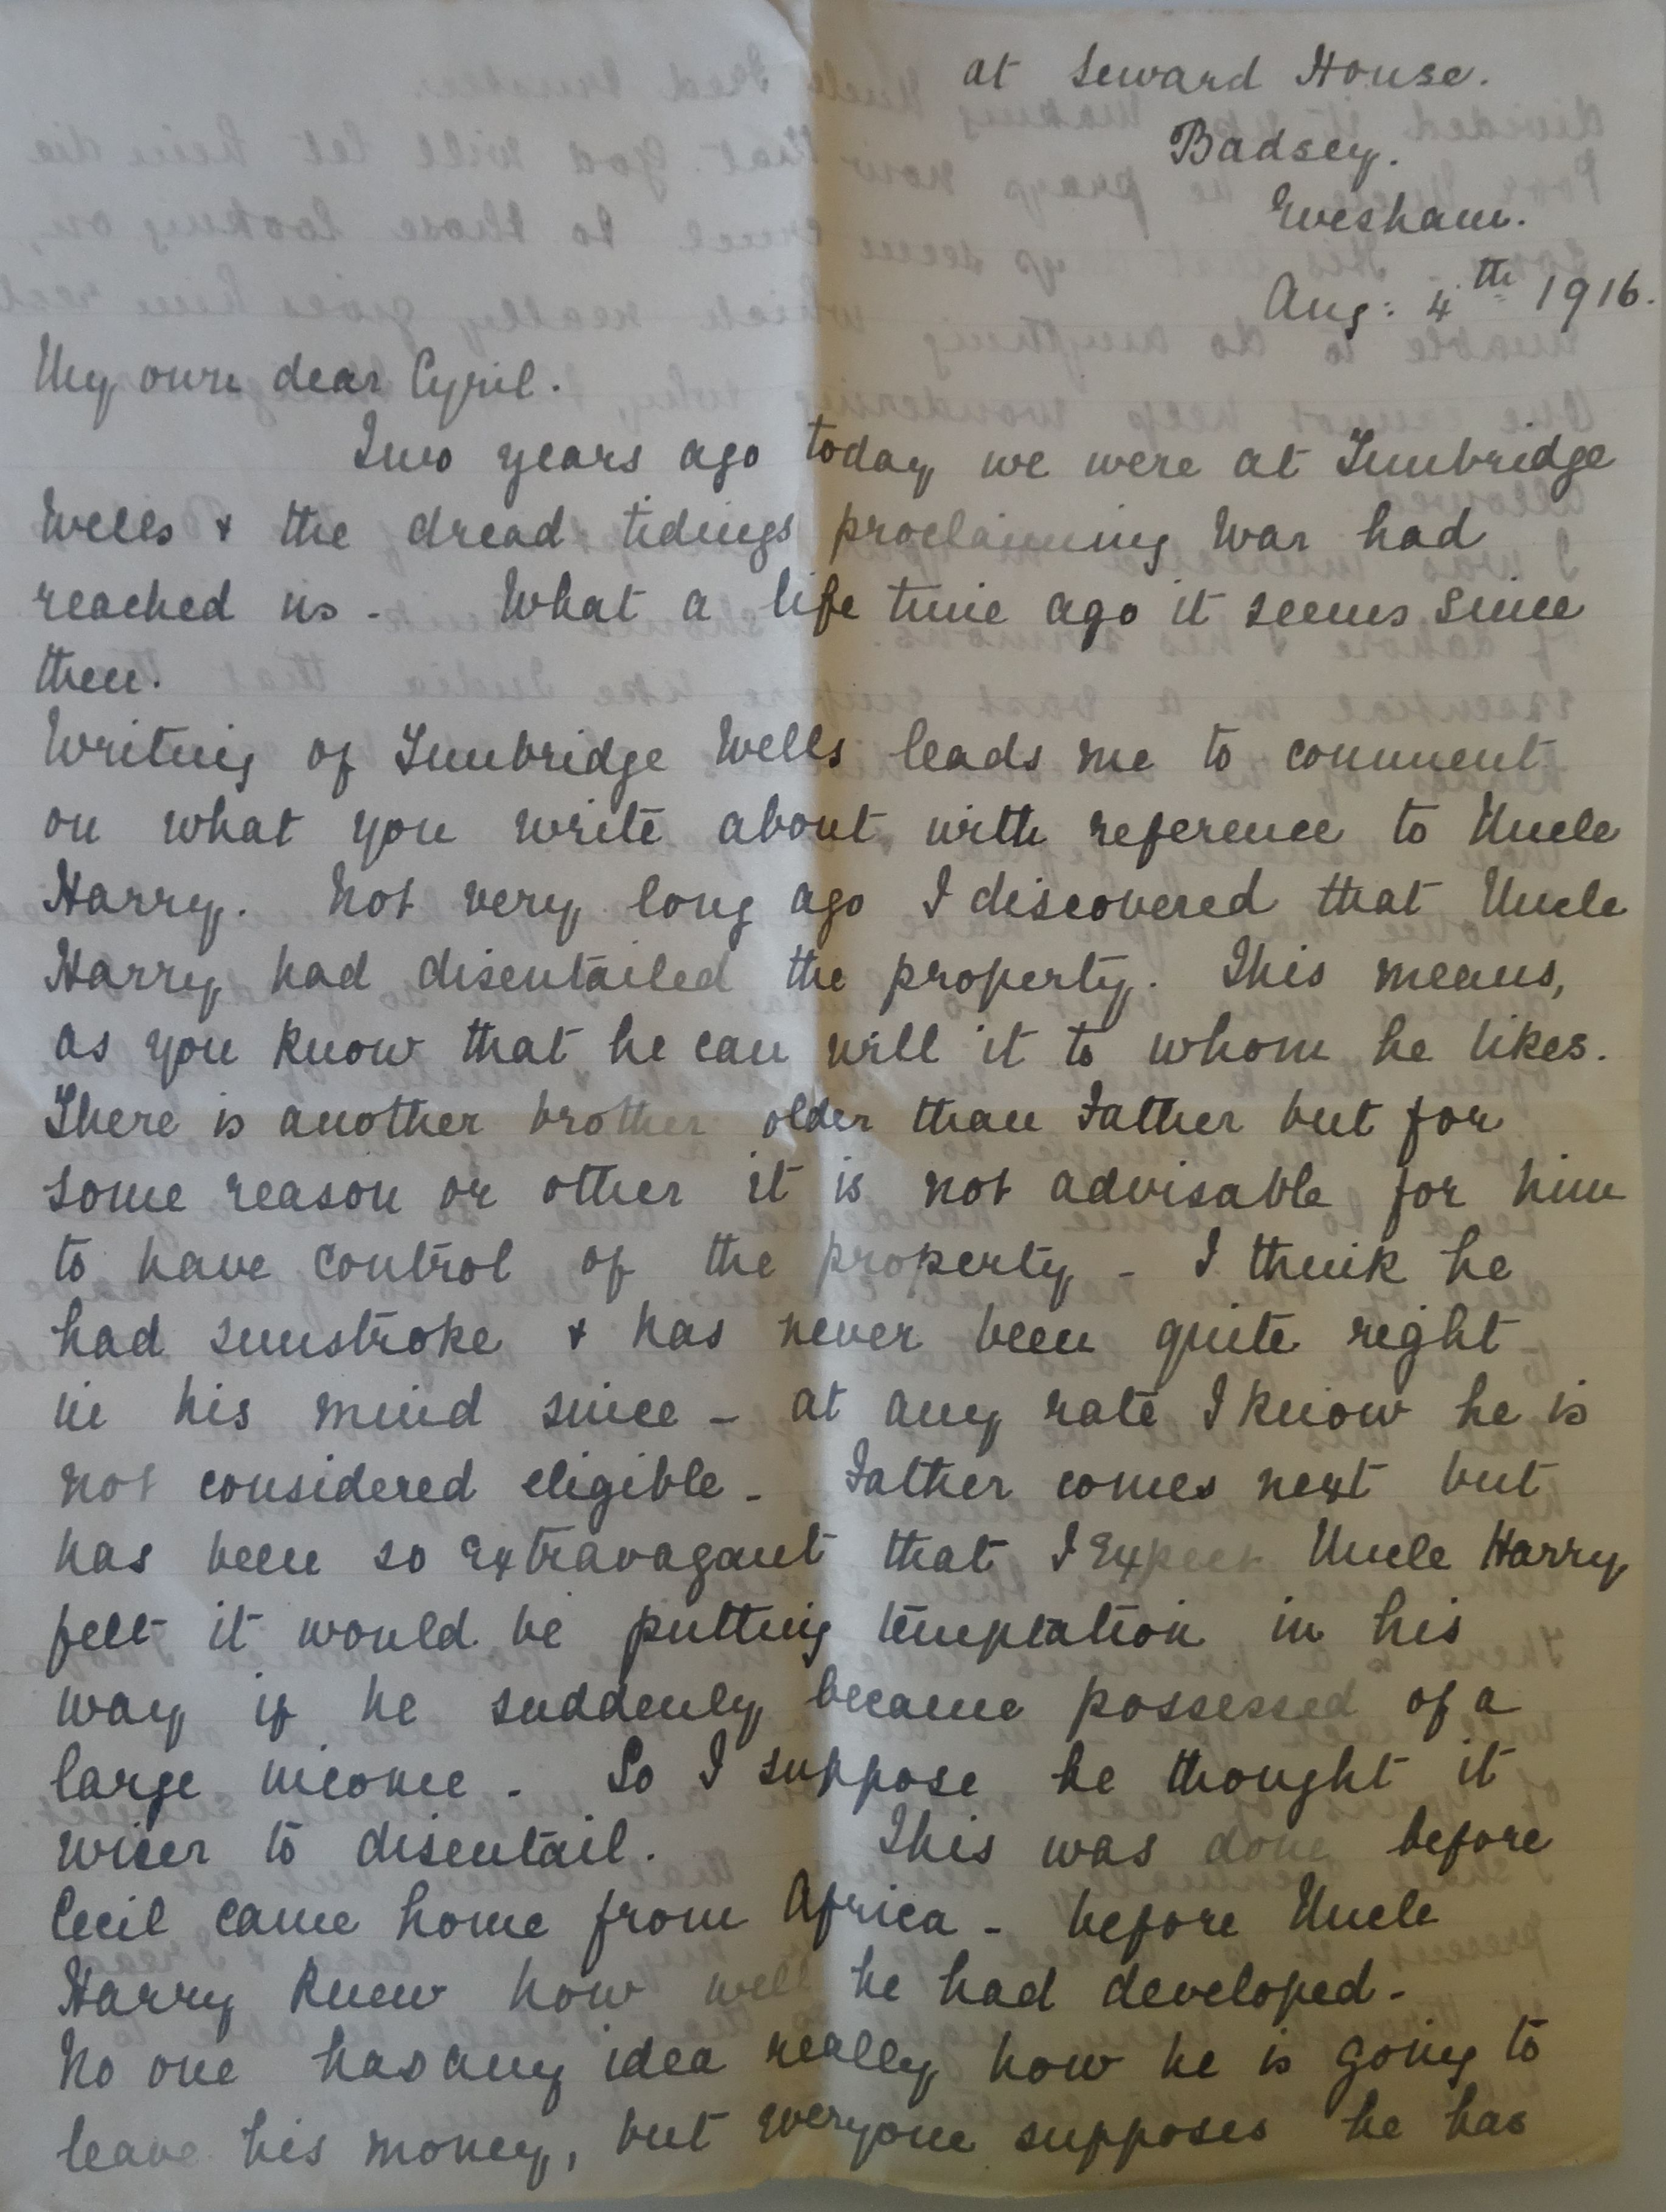 at Seward House.
Badsey.
Evesham.
Aug: 4th 1916.
My own dear Cyril.
Two years ago today we were at Tunbridge
Wells & the dread tidings proclaiming War had
reached us - What a life time ago it seems since
then.
Writing of Tunbridge Wells leads me to comment
on what you write about with reference to Uncle
Harry. Not very long ago I discovered that Uncle
Harry had disentailed the property. This means,
as you know that he can will it to whom he likes.
There is another brother older than Father but for
some reason or other it is not advisable for him
to have control of the property - I think he
had sunstroke & has never been quite right
in his mind since - at any rate I know he is
not considered eligible - Father comes next but
has been so extravagant that I expect Uncle Harry
felt it would be putting temptation in his
way if he suddenly became possessed of a
large income - So I suppose he thought it
wiser to disentail. This was done before
Cecil came home from Africa - before Uncle
Harry knew how well he had developed -
No one has any idea really how he is going to
leave his money, but everyone supposes he has